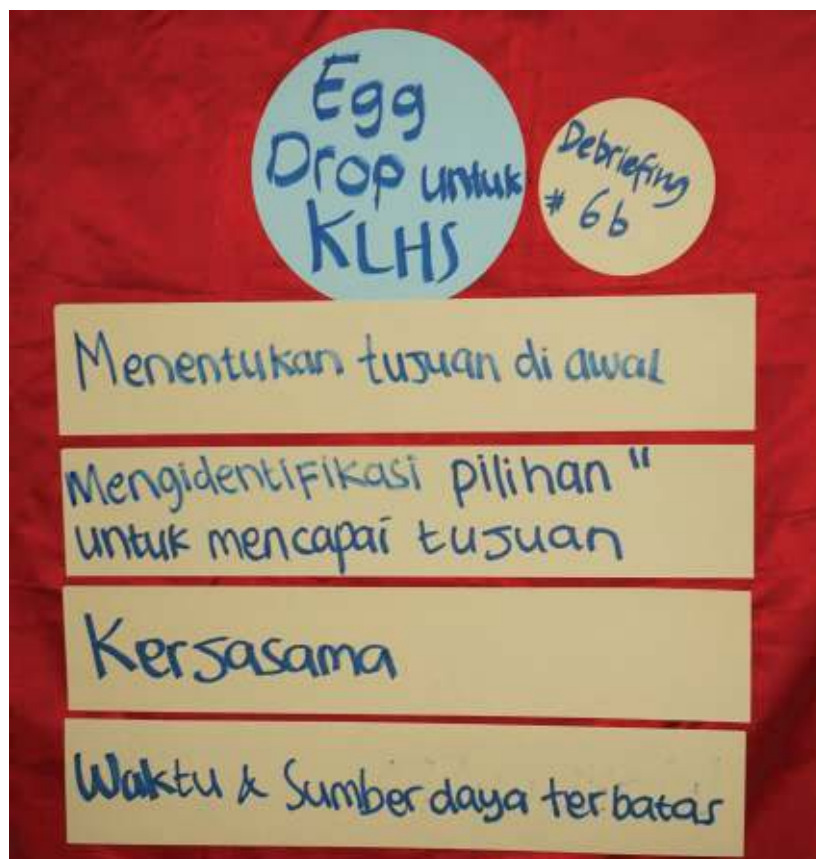 Egg
Drop untuk
KLHS
Debriefing
# 6b
Menentukan tujuan di awal
Mengidentifikasi pilihan "
untuk mencapai tujuan
Kerjasama
Waktu & Sumber daya terbatas